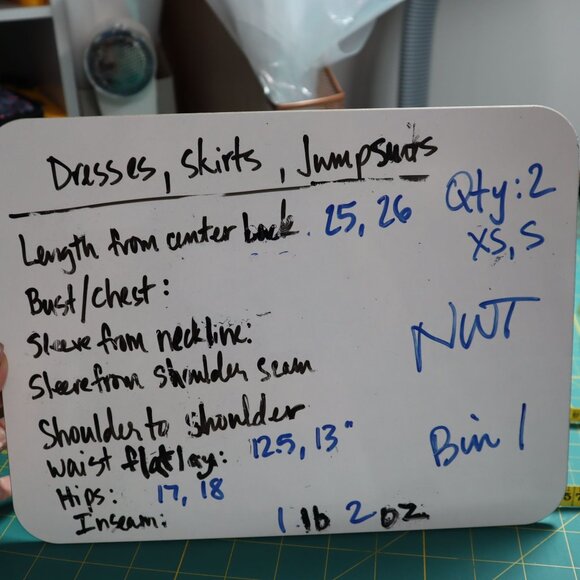 Dresses, skirts, Jumpsuits
Qty: 2
XS, S
Length from center back. 25, 26
Bust/Chest:
Sleeve from neckline:
NWT
Sleeve from shoulder seam
Shoulder to shoulder
waist flatlay: 12.5, 13"
Bin 1
Hips: 17, 18
Inseam: 1 lb 2 oz